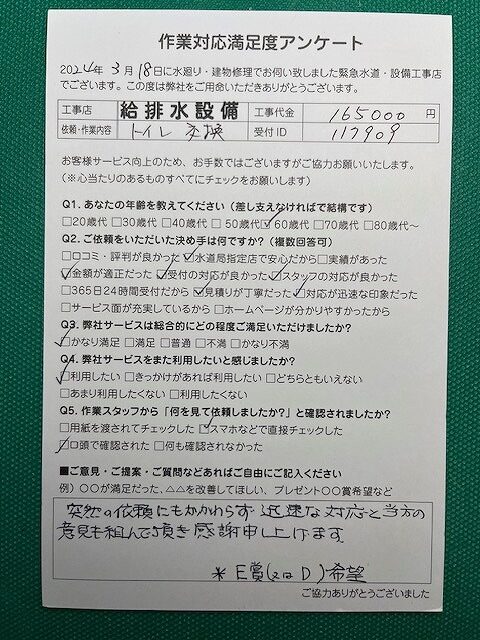 作業対応満足度アンケート
2024年 3月 18日に水廻り・建物修理でお伺い致しました緊急水道・設備工事店
でございます。この度は弊社をご用命いただきありがとうございます。
工事店 給排水設備 工事代金 165000 円
依頼・作業内容 トイレ 交換 受付ID 117909
お客様サービス向上のため、お手数ではございますがご協力お願いいたします。
（※心当たりのあるものすべてにチェックをお願いします）
Q1. あなたの年齢を教えてください（差し支えなければで結構です）
□20歳代 □30歳代 □40歳代 □50歳代 ☑60歳代 □70歳代 □80歳代～
Q2. ご依頼をいただいた決め手は何ですか？（複数回答可）
□口コミ・評判が良かった ☑水道局指定店で安心だから □実績があった
☑金額が適正だった ☑受付の対応が良かった ☑スタッフの対応が良かった
□365日24時間受付だから ☑見積りが丁寧だった ☑対応が迅速な印象だった
□サービス面が充実しているから □ホームページが分かりやすかったから
Q3. 弊社サービスは総合的にどの程度ご満足いただけましたか？
☑かなり満足 □満足 □普通 □不満 □かなり不満
Q4. 弊社サービスをまた利用したいと感じましたか？
☑利用したい □きっかけがあれば利用したい □どちらともいえない
□あまり利用したくない □利用したくない
Q5. 作業スタッフから「何を見て依頼しましたか？」と確認されましたか？
□用紙を渡されてチェックした ☑スマホなどで直接チェックした
☑口頭で確認された □何も確認されなかった
■ご意見・ご提案・ご質問などあればご自由にご記入ください
例）〇〇が満足だった、△△を改善してほしい、プレゼント〇〇賞希望など
突然の依頼にもかかわらず 迅速な対応と当方の
意見も組んで頂き感謝申し上げます。
※E賞(又はD)希望
ご協力ありがとうございました